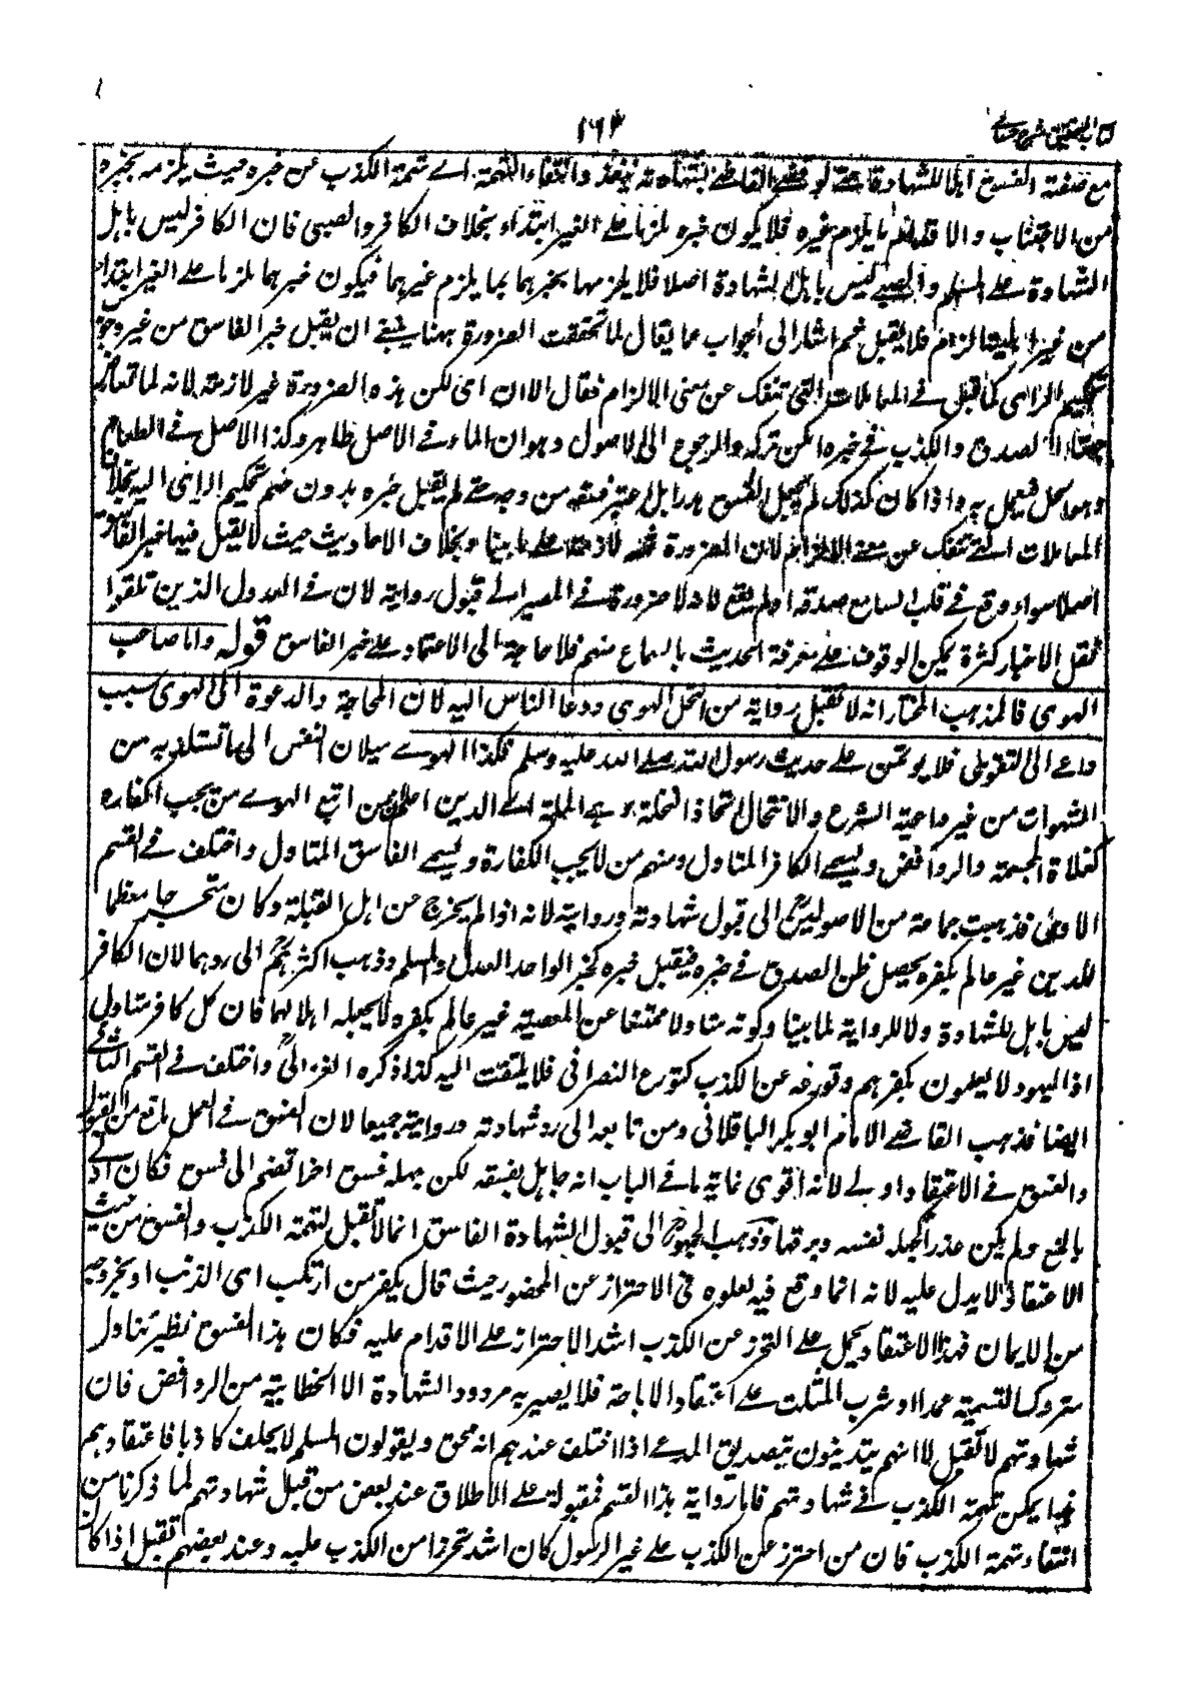 ١٦٣
مع صفة الفسق اهلا للشهادة حتى لو قضى القاضي بشهادته نفذ وانتفاء التهمة اے تهمة الكذب عن خبره حيث يلزمه بخبره
من الاجتناب والاقدام ما يلزم غيره فلا يكون خبره ملزما على الغير ابتداء بخلاف الكافر والصبى فان الكافر ليس باهل
الشهادة على المسلم والصبي ليس باهل الشهادة اصلا فلا يلزمهما بخبرهما بما يلزم غيرهما فيكون خبرهما ملزما على الغير ابتداء
من غير الزام فلا يقبل ثم اشار الى الجواب عما يقال لما تحققت الضرورة ههنا ينبغى ان يقبل خبر الفاسق من غير وجوب
تحكيم الراى كما قبل فى المعاملات التى تنفك عن معنى الالزام فقال الا ان اى لكن هذه الضرورة غير لازمة لانه لما تعارض
جهتا الصدق والكذب فى خبره امكن تركه والرجوع الى الاصول وهو ان الماء فى الاصل طاهر وكذا الاصل فى الطعام
وهو الحل فيعمل به واذا كان كذلك لم يجعل الفسق هدرا بل اعتبر فسقه من وجه حتى لم يقبل خبره بدون ضم تحكيم الراى اليه بخلاف
المعاملات التى تنفك عن معنى الالزام لان الضرورة ثمه لازمة على ما بينا وبخلاف الاحاديث حيث لا يقبل فيها خبر الفاسق
اصلا سواء وقع فى قلب السامع صدقه او لم يقع لانه لا ضرورة فى المصير الى قبول روايته لان فى العدول الذين تلقوا
نقل الاخبار كثرة يمكن الوقوف على معرفة الحديث بالسماع منهم فلا حاجة الى الاعتماد على خبر الفاسق قوله واما صاحب
الهوى فالمذهب المختار انه لا تقبل رواية من انتحل الهوى ودعا الناس اليه لان المحاجة والدعوة الى الهوى سبب
داع الى التقول فلا يوتمن على حديث رسول الله صلى الله عليه وسلم فكذا الهوے ميلان النفس الى ما تستلذ به من
الشهوات من غير داعية الشرع والانتحال اتخاذ النحلة وهى الملة اے الدين اعلم ان من اتبع الهوے من يجب اكفاره
كغلاة المجسمة والروافض ويسمى الكافر المتاول ومنهم من لا يجب اكفاره ويسمى الفاسق المتاول واختلف فى القسم
الاول فذهبت جماعة من الاصوليين الى قبول شهادته وروايته لانه اذا لم يخرج عن اهل القبلة وكان متحرجا معظما
للدين غير عالم بكفره يحصل ظن الصدق فى خبره فيقبل خبره كخبر الواحد العدل المسلم وذهب اكثرهم الى ردهما لان الكافر
ليس باهل للشهادة ولا للرواية لما بينا وكونه متاولا ممتنعا عن المعصية غير عالم بكفره لا يجعله اهلا لهما فان كل كافر متاول
اذ اليهود لا يعلمون بكفرهم وتورعه عن الكذب كتورع النصرانى فلا يلتفت اليه كذا ذكره الغزالى واختلف فى القسم الثانى
ايضا فذهب القاضى الامام ابو بكر الباقلانى ومن تابعه الى رد شهادته وروايته جميعا لان الفسق فى العمل مانع من القبول
والفسق فى الاعتقاد اولے لانه اقوى غاية ما فى الباب انه جاهل بفسقه لكن جهله فسق اخر انضم الى فسق فكان اولى
بالمنع ولم يكن عذرا لجهله نفسه وذهب الجمهور الى قبول الشهادة الفاسق انما لا تقبل لتهمة الكذب والفسق من حيث
الاعتقاد لا يدل عليه لانه انما وقع فيه لغلوه فى الاحتراز عن المحظور حيث قال بكفر من ارتكب اى الذنب او بخروجه
من الايمان فهذا الاعتقاد يحمل على التحرز عن الكذب اشد الاحتراز على الاقدام عليه فكان هذا الفسق نظير تناول
متروك التسمية عمدا او شرب المثلث على اعتقاد الاباحة فلا يصير به مردود الشهادة الا الخطابية من الروافض فان
شهادتهم لا تقبل لانهم يتدينون بتصديق المدعے اذا حلف عندهم انه محق ويقولون المسلم لا يحلف كاذبا فاعتقادهم
هذا يمكن تهمة الكذب فى شهادتهم فاما رواية هذا القسم فمقبولة على الاطلاق عند بعض من قبل شهادتهم لما ذكرنا من
انتفاء تهمة الكذب فان من احترز عن الكذب على غير الرسول كان اشد تحرزا من الكذب عليه وعند بعضهم تقبل اذا كان